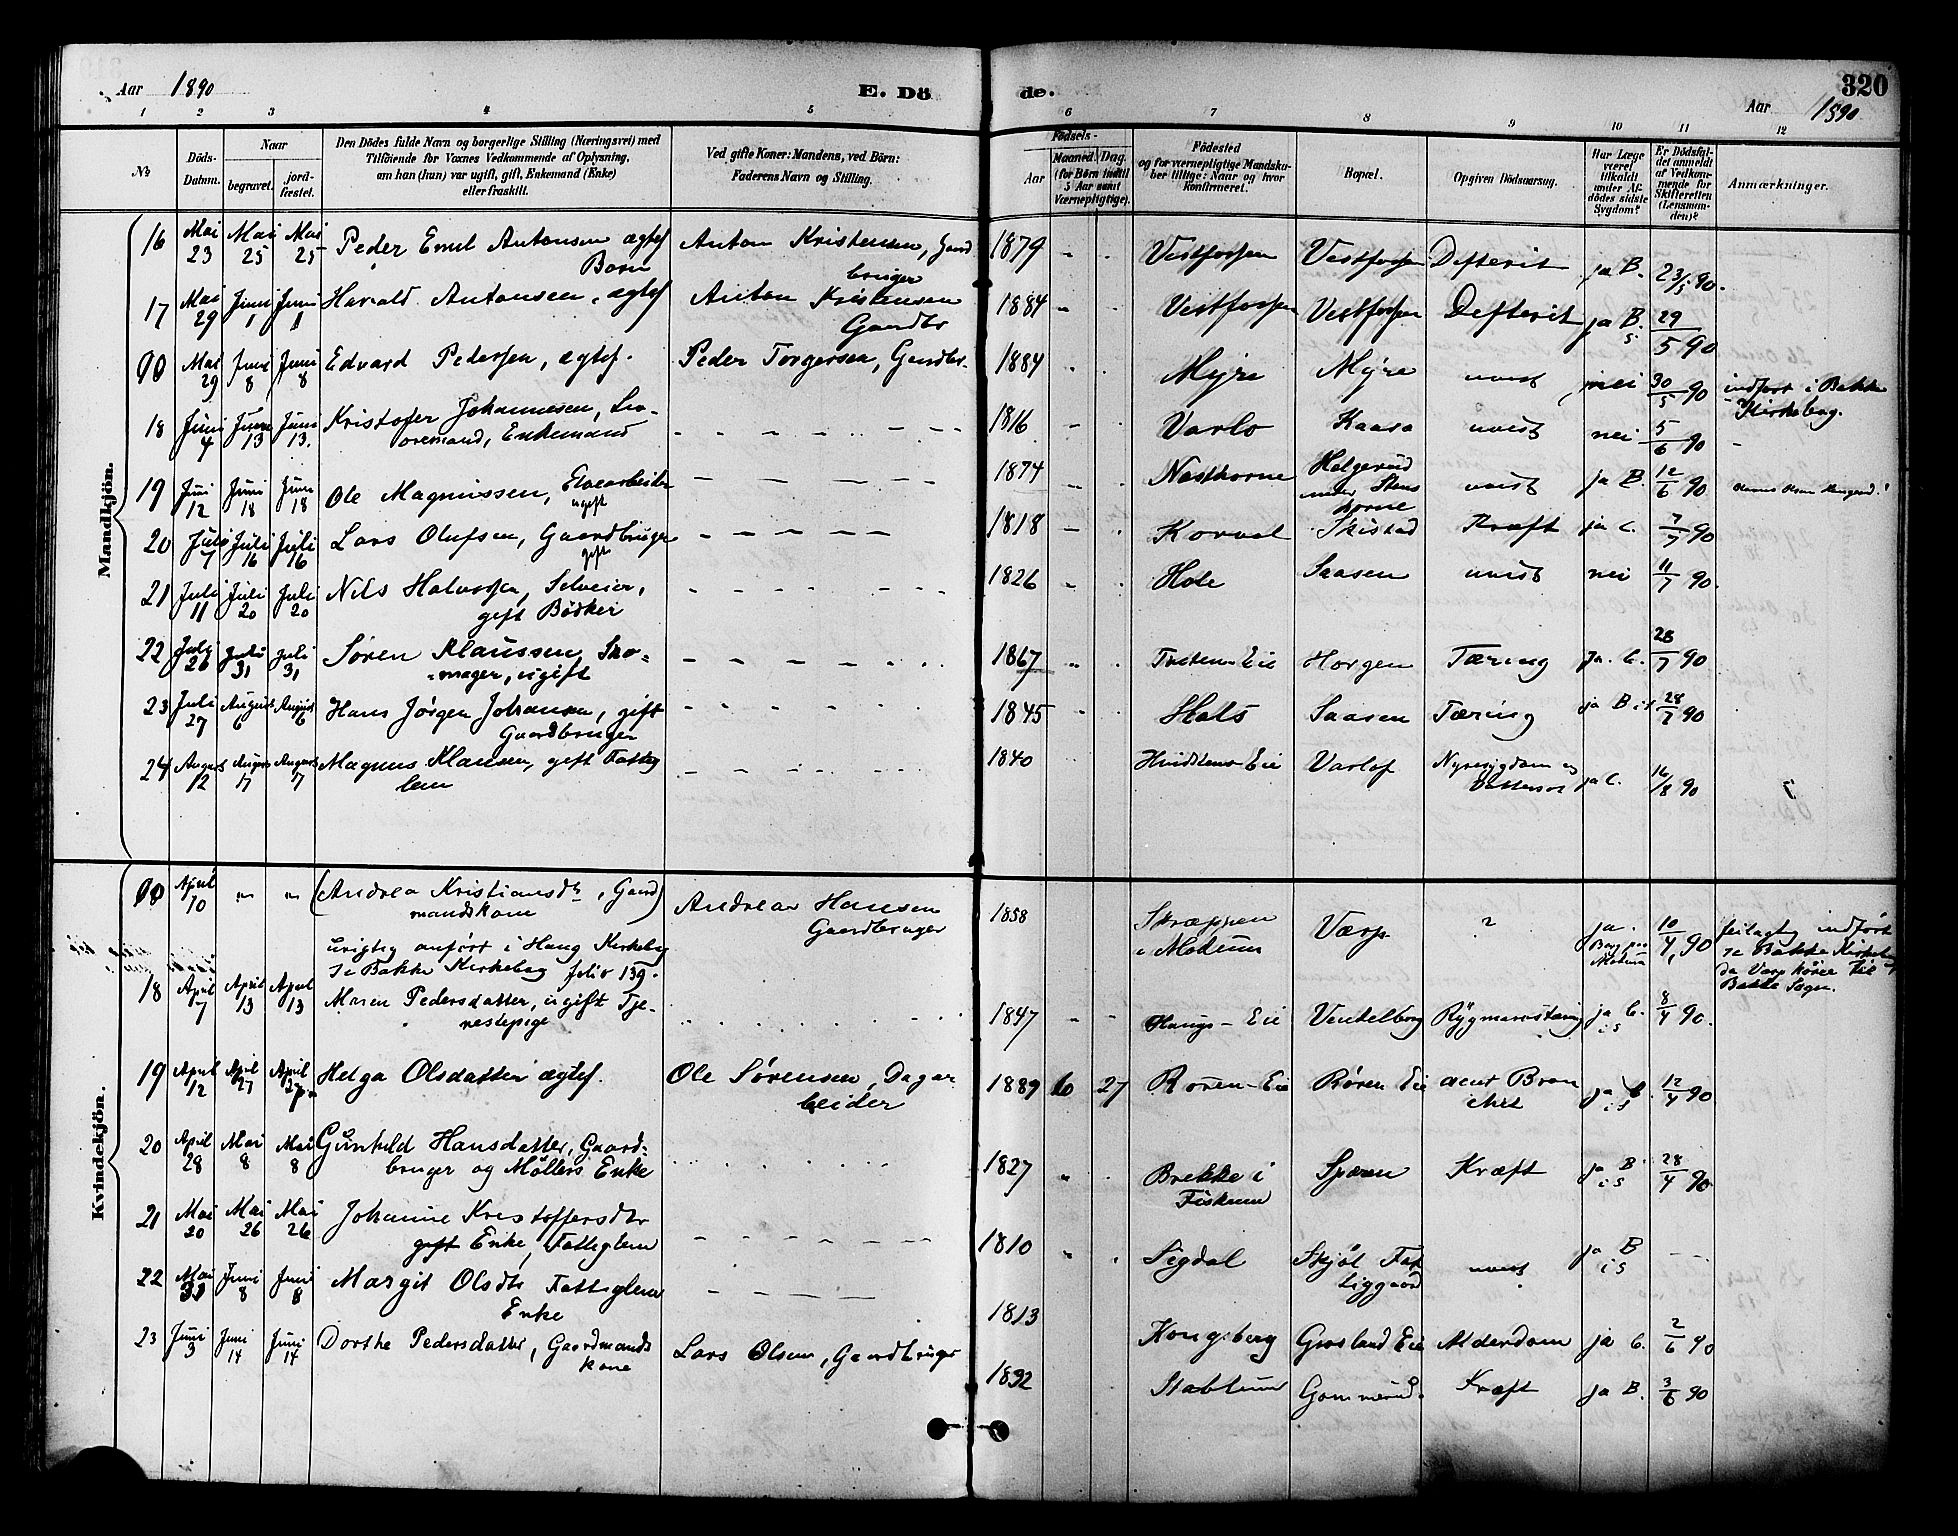 Aar 1890
E. Dö
de.
320
Aar 1890
1 2 3 4 5 6 7 8 9 10 11 12
№
Döds-Datum.
Naar
begravet.
jord-fæstet.
Den Dödes fulde Navn og borgerlige Stilling (Næringsvei) med
Tilföiende for Voxnes Vedkommende af Oplysning,
om han (hun) var ugift, gift, Enkemand (Enke)
eller fraskilt.
Ved gifte Koner: Mandens, ved Börn:
Faderens Navn og Stilling.
Födsels-
Aar
Maaned.
Dag.
(for Börn indtil
5 Aar samt
Værnepligtige).
Födested
og for værnepligtige Mandska-
ber tillige: Naar og hvor
konfirmeret.
Bopæl.
Opgiven Dödsaarsag.
Har Læge
været
tilkaldt
under Af-
dödes sidste
Sygdom?
Er Dödsfal-
det anmeldt
af Vedkom-
mende for
Skifteretten
(Lensman-
den)?
Anmærkninger.
Mandkjön.
16 Mai 23 Mai 25 Mai 25 Peder Emil Antonsen ægtef Barn Anton Kristensen, Gaardbruger 1879 Vestfossen Vestfossen Defterit ja B. 23/5 90.
17 Mai 29 Juni 1 Juni 1 Harald Antonsen, ægtef Anton Kristensen Gaardbr 1884 Vestfossen Vestfossen Defterit ja B. 29/5 90
00 Mai 29 Juni 8 Juni 8 Edvard Pedersen, ægtef. Peder Torgersen, Gaardbr. 1884 Myre Myre uvist nei 30/5 90 indført i Bakke Kirkebog.
18 Juni 4 Juni 13 Juni 13. Kristofer Johannesen, Enkemand 1816 Varlo Kaasa uvist nei 5/6 90
19 Juni 12 Juni 18 Juni 18 Ole Magnussen, Elvearbeider ugift 1874 Nasthorne Helgerud under Stenshorne uvist ja B. 12/6 90
20 Juli 7 Juli 16 Juli 16 Lars Olufsen, Gaardbruger gift 1818 Korval Skistad Kræft ja C. 7/7 90
21 Juli 11 Juli 20 Juli 20 Nils Halvorsen, Selveier, gift Bödker 1826 Hole Saasen uvist nei 11/7 90.
22 Juli 26 Juli 31 Juli 31 Søren Klaussen, Skomager, ugift 1867 Horgen Tæring ja. C. 28/7 90
23 Juli 27 August 6 August 6 Hans Jørgen Johansen, gift Gaardbruger 1845 Hals Saasen Tæring ja B 28/7 90
24 August 12 August 17 August 17 Magnus Klausen, gift Fattiglem 1840 Hvidstens-Eie Varlof Nyresygdom og Vattersot ja C. 16/8 90
Kvindekjön.
00 April 10 " " (Andrea Kristiansdtr, Gaardmandskone) Andreas Hansen Gaardbruger 1858 Skræppen i Modum Værp ? ja. Modum 10/4 90 feilagtig indført
urigtig anført i Haug Kirkebog
se Bakke Kirkebog folio 139.
18 April 7 April 13 April 13 Maren Pedersdatter, ugift Tjenestepige 1847 Haugs-Eie Ventelborg Rygmarvstæring ja C. 8/4 90.
19 April 12 April 27 April 27 Helga Olsdatter ægtef. Ole Sørensen, Dagarbeider 1889 10 27 Røren-Eie Røren Eie acut Bronchit ja C. 12/4 90
20 April 28 Mai 8 Mai 8 Gunhild Hansdatter, Gaardbruger og Møllers Enke 1827 Brekke i Fiskum Spæren Kræft ja B 28/4 90
21 Mai 20 Mai 26 Mai 26 Johanne Kristoffersdtr gift Enke, Fattiglem 1810 Sigdal Skjøl Fattiggaard uvist ja B
22 Mai 31 Juni 8 Juni 8 Margit Olsdtr Fattiglem Enke 1813 Kongsberg Grosland Eie Alderdom ja C. 2/6 90
23 Juni 3 Juni 14 Juni 14 Dorthe Pedersdatter, Gaardmandskone Lars Olsen, Gaardbruger 1832 Stablum Gommerud. Kræft ja B. 3/6 90